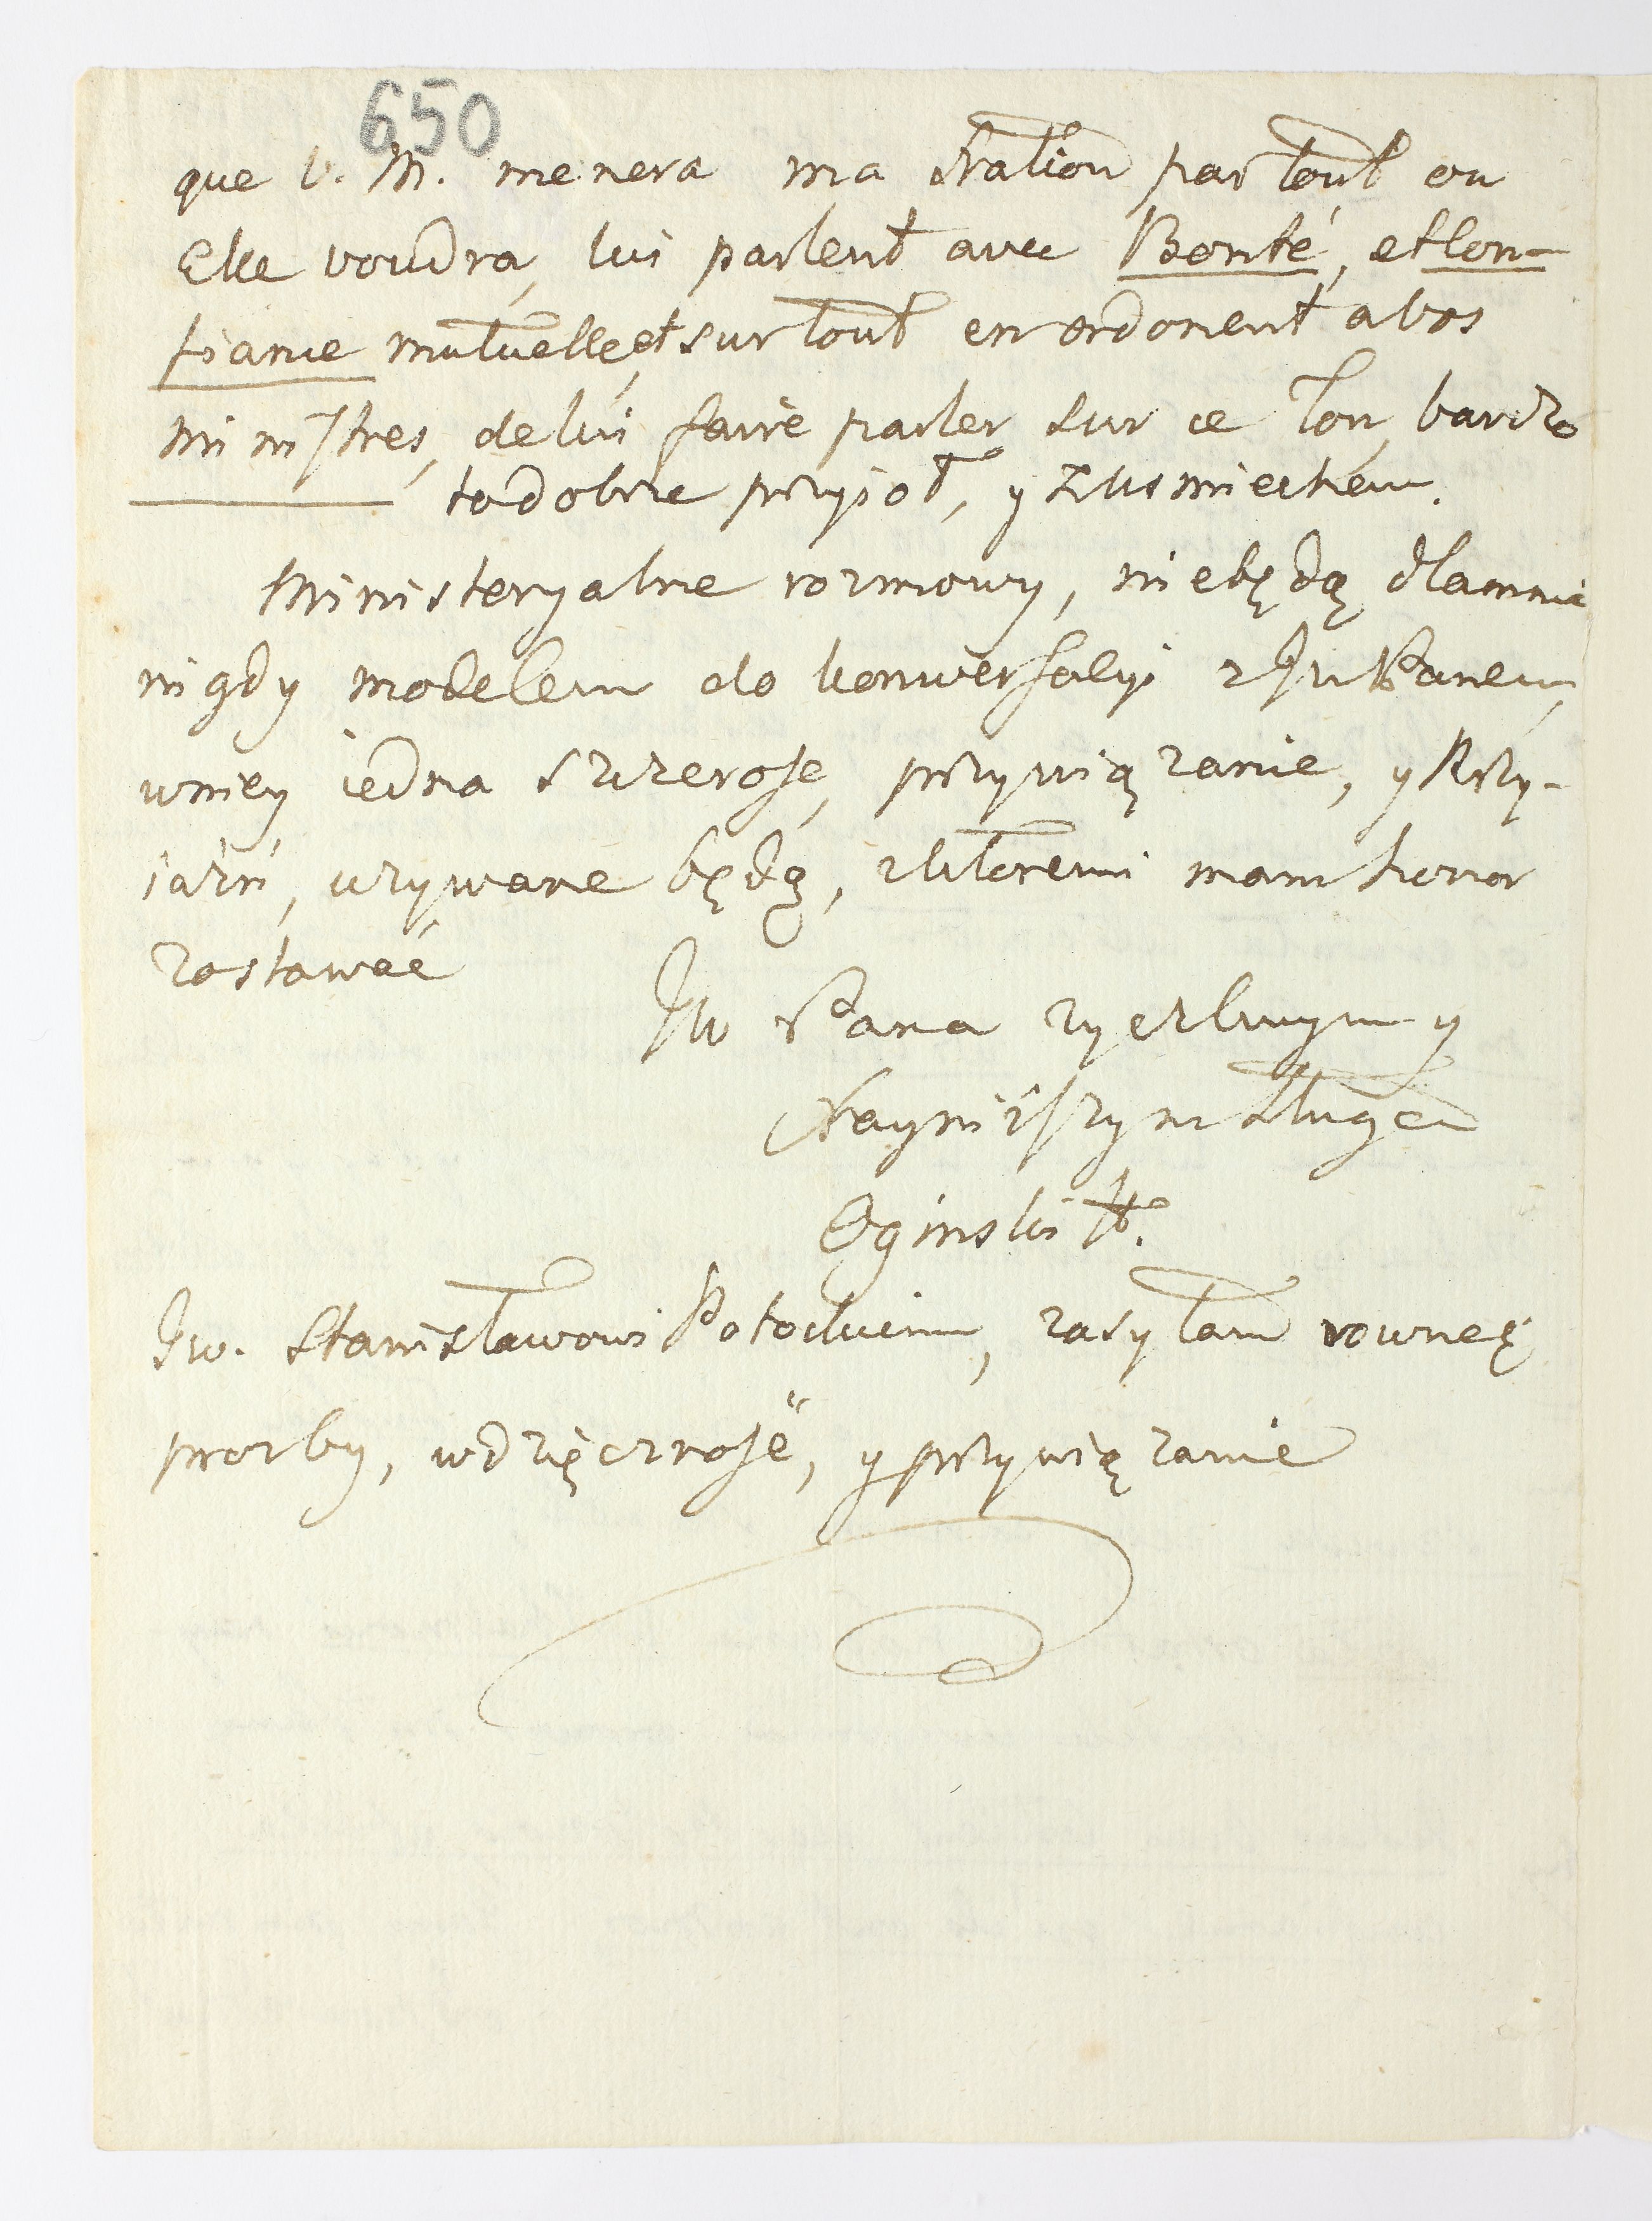 650
que V. M. menera ma Nation partout ou
Elle voudra, lui parlent avec Bonté, et Con-
fiance mutuelle, et surtout en ordonent a vos
ministres, de lui faire parler sur ce ton, bardzo
to dobrze przyioł, y z Usmiechem.
Ministeryalne rozmowy, niebędą dlamnie
nigdy modelem do konwersacyi z JW Panem,
wniey iedna szczerosć, przywiązanie, y Przy-
iaźń, uzywane będą, z ktoremi mam honor
zostawać
JW Pana zyczliwym y
Nayniższym sługą
Oginski H.
JW. Stanisławowi Potockiemu, zasyłam rowneż
prozby, wdzięcznosć, y przywiązanie